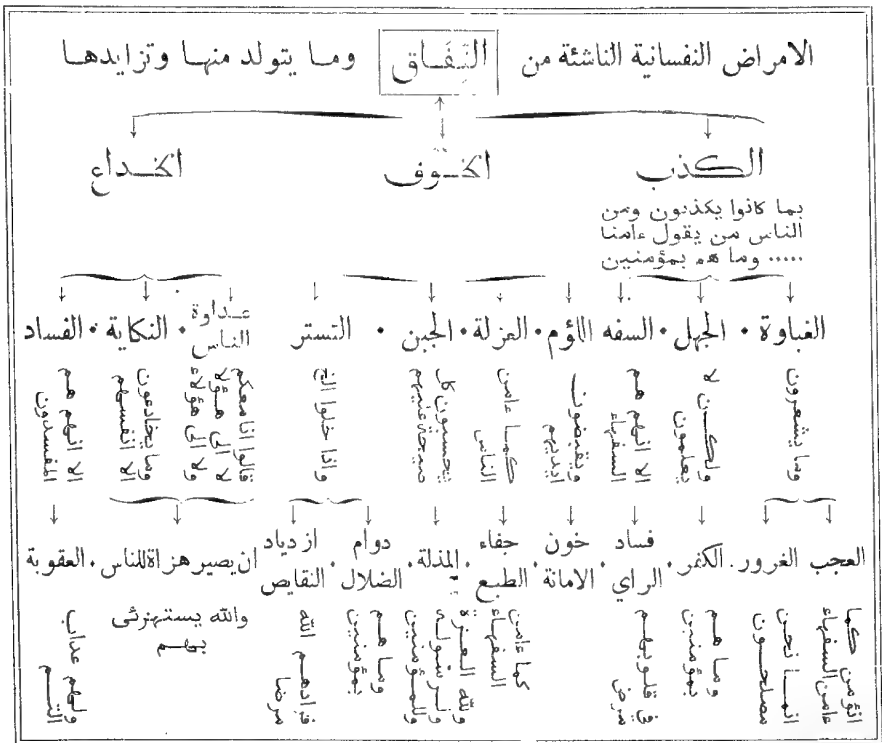 الامراض النفسانية الناشئة من النِفَاق وما يتولد منها وتزايدها
الكذب
الخوف
الخداع
بما كانوا يكذبون ومن
الناس من يقول ءامنا
..... وما هم بمؤمنين
الغباوة • الجهل • السفه
اللؤم • العزلة • الجبن • التستر
عداوة
الناس • النكاية • الفساد
وما يشعرون
ولكن لا
يعلمون
الا انهم هم
السفهاء
ويقبضون
ايديهم
كما ءامن
الناس
يحسبون كل
صيحة عليهم
واذا خلوا الخ
قالوا انا معكم
لا الى هؤلاء
ولا الى هؤلاء
وما يخادعون
الا انفسهم
الا انهم هم
المفسدون
العجب
الغرور
الكفر
فساد
الراي
خون
الامانة
جفاء
الطبع
المذلة
دوام
الضلال
ازدياد
النقايص
ان يصير هزاة للناس
العقوبة
انؤمن كما
ءامن السفهاء
انما نحن
مصلحون
وما هم
بمؤمنين
في قلوبهم
مرض
كما ءامن
السفهاء
ولله العزة
ولرسوله
وللمؤمنين
وما هم
بمؤمنين
فزادهم الله
مرضا
والله يستهزئى
بهم
ولهم عذاب